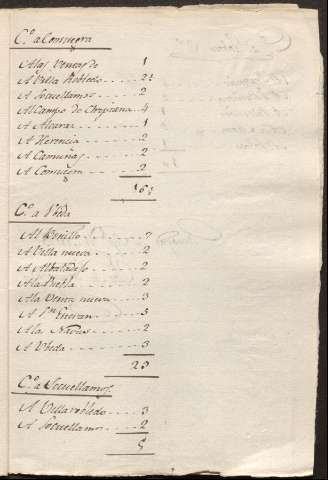 C.º a Consuegra
A las Ventas de 1
A Villa Robledo 2½
A Socuellamos 2
Al Campo de Criptana 4
A Alcazar 1
A Herencia 2
A Camuñas 2
A Consuegra 2
16½
C.º a Vbeda
Al Bonillo 7
A Villa nueva 2
A Albaladejo 2
A la Puebla 2
A la Venta nueva 3
A S.n Estevan 5
A las Navas 2
A Vbeda 3
C.º a Socuellamos
A Villarobledo 3
A Socuellamos 2
5